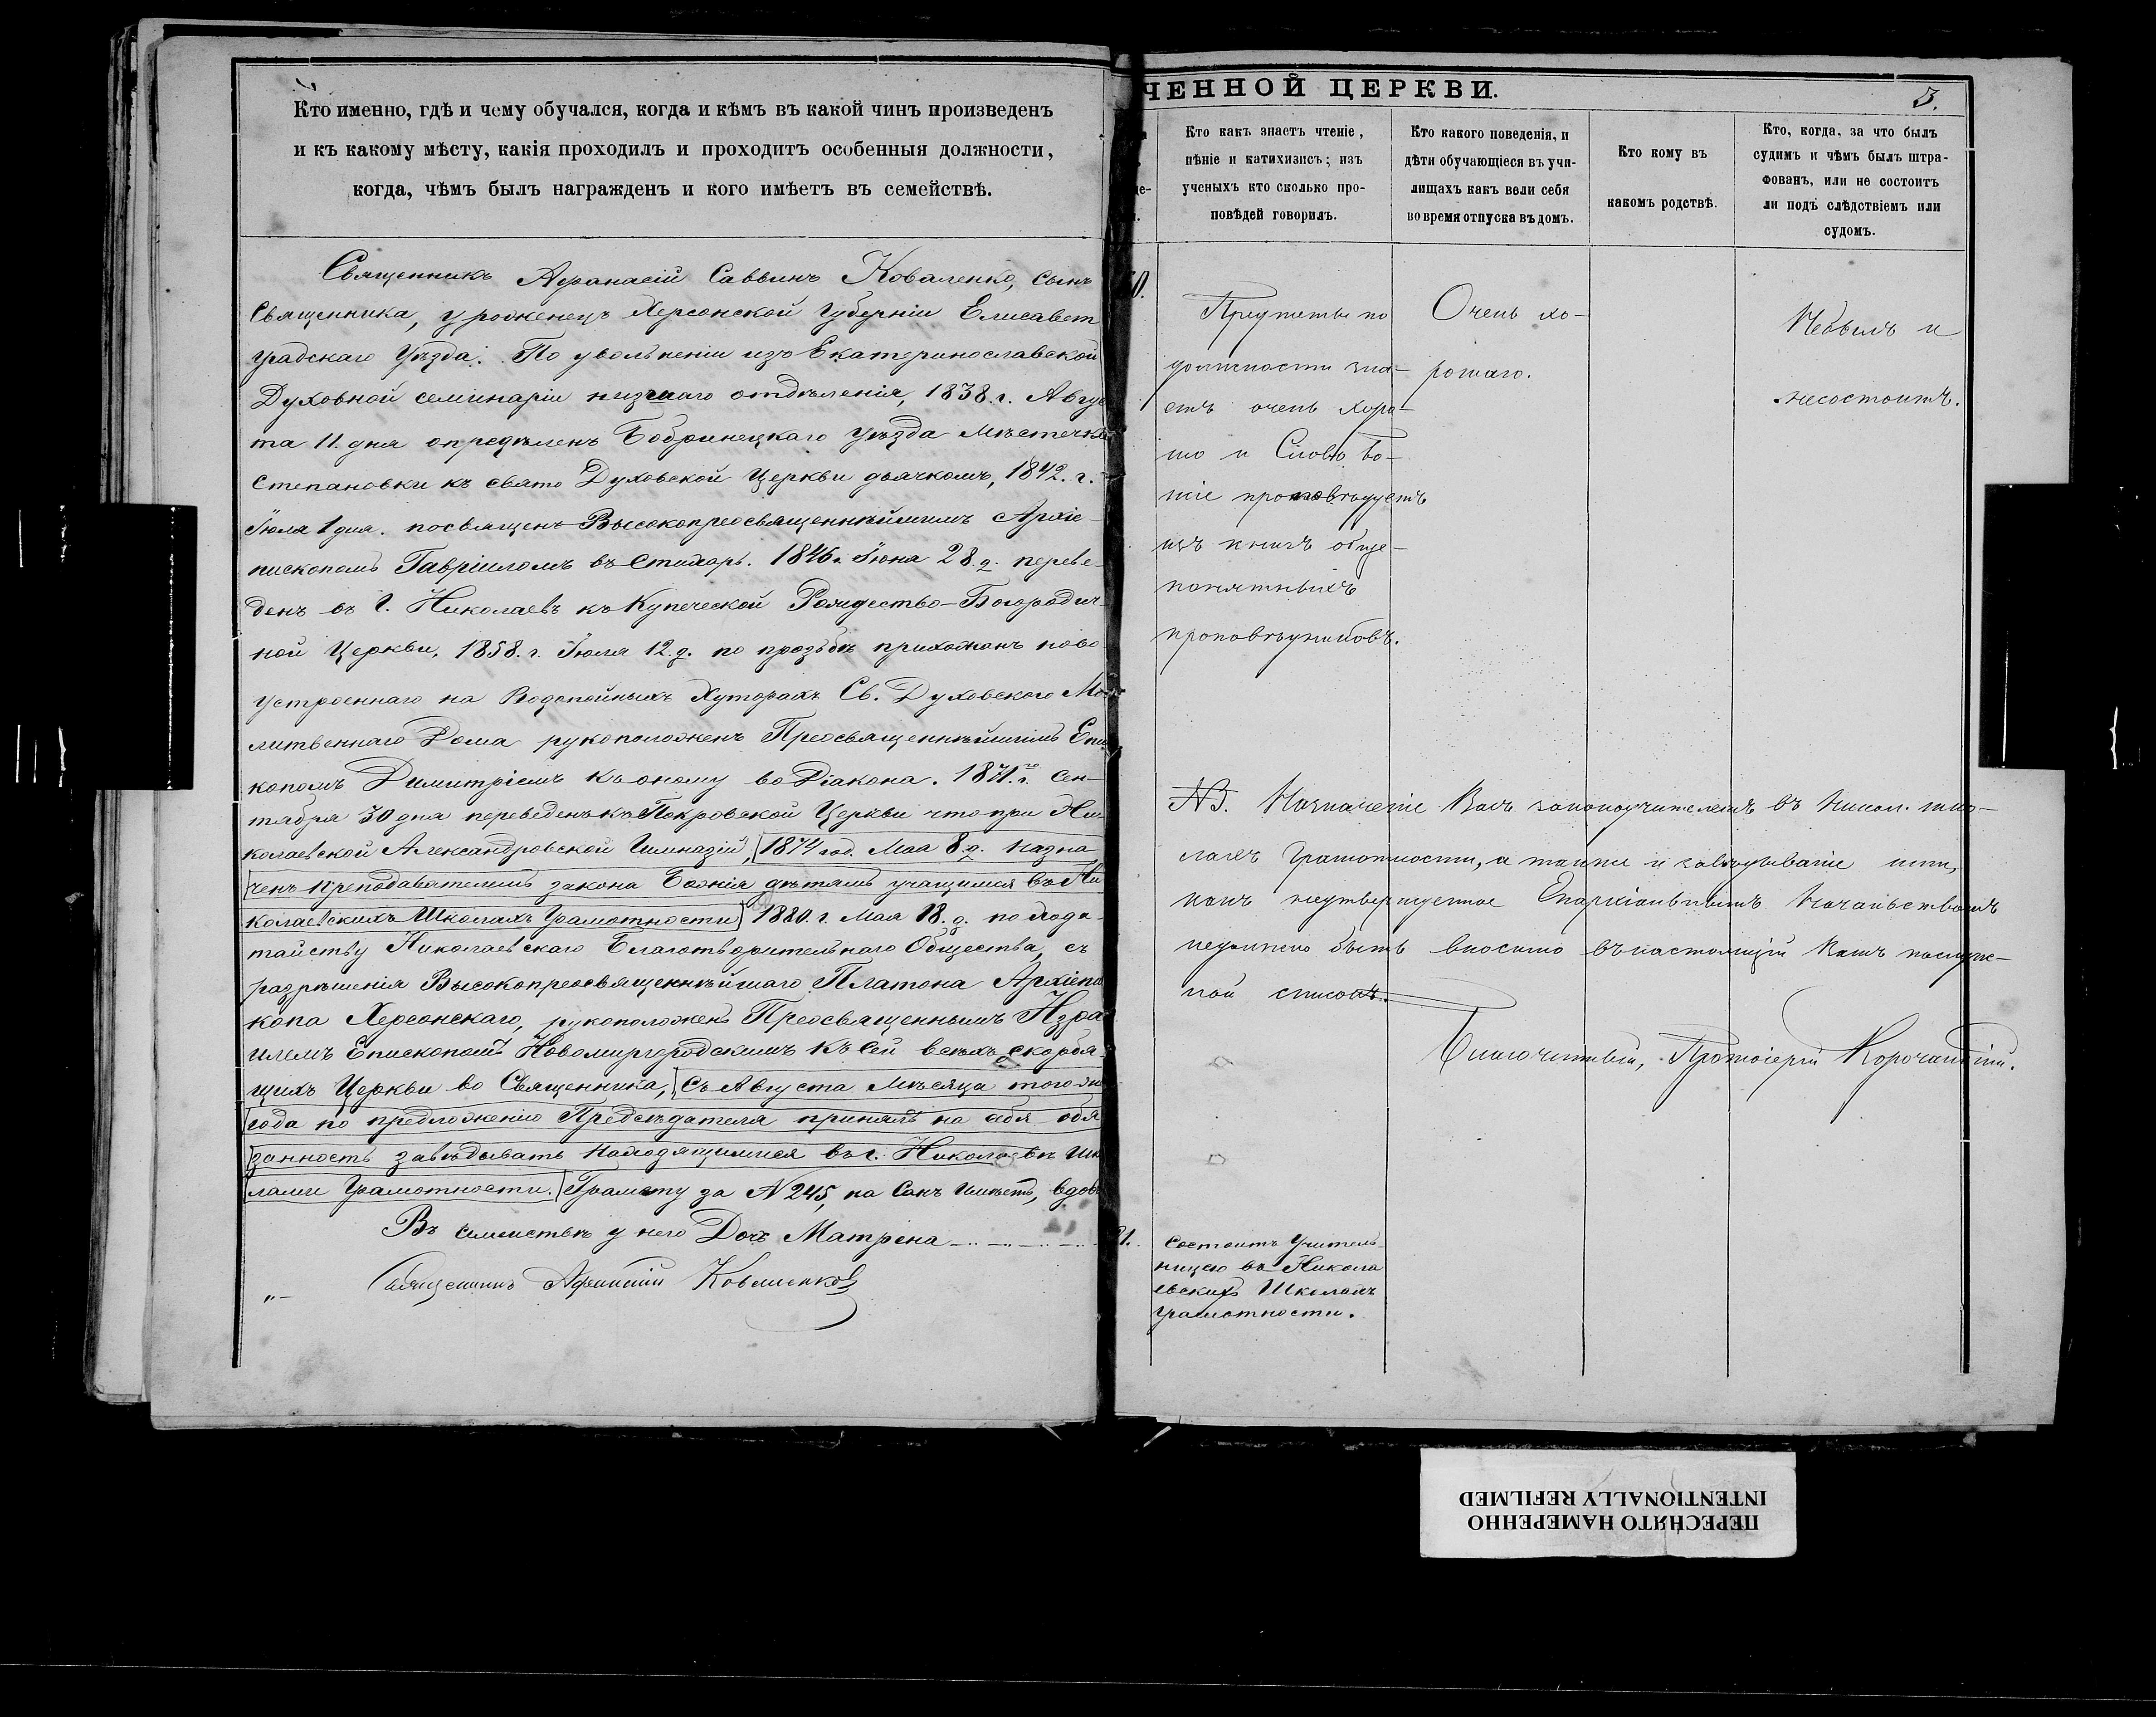 Кто именно, гдѣ и чему обучался, когда и кѣмъ въ какой чинъ произведенъ
и къ какому мѣсту, какія проходилъ и проходитъ особенныя должности,
когда, чѣмъ былъ награжденъ и кого имѣетъ въ семействѣ.
Священникъ Афанасій Саввинъ Коваленко, сынъ
Священника, уроженецъ Херсонской Губерніи Елисавет
градскаго Уѣзда. По увольненіи изъ Екатеринославской
Духовной семинаріи низшаго отдѣленія, 1838. г. Авгус
та 11. дня опредѣленъ Бобринецкаго Уѣзда Мѣстечка
Степановки къ свято Духовской Церкви дьячкомъ, 1842. г.
Іюля 1 дня. посвященъ Высокопреосвященнѣйшимъ Архіе-
пископомъ Гавріиломъ въ Стихарь. 1846 г. Іюна 28. д. переве-
денъ въ г. Николаевъ къ Купеческой Рождество-Богородич-
ной Церкви, 1858. г. Іюля 12. д. по прозьбѣ прихожанъ ново
устроеннаго на Водопойныхъ Хуторахъ Св. Духовскаго Мо-
литвеннаго Дома рукоположенъ Преосвященнѣйшимъ Епис
копомъ Димитріемъ къ оному во Діакона. 1871. го г. Сен-
тября 30 дня переведенъ къ Покровской Церкви что при Ни-
колаевской Александровской Гимназіи, 1874 год. Маа 8. д. назна
ченъ преподавателемъ закона Божія дѣтямъ учащимся въ Ни
колаевскихъ Школахъ Грамотности 1880. г. Маа 18. д. по хода-
тайству Николаевскаго Благотворительнаго Общества, съ
разрѣшенія Высокопреосвященнѣйшаго Платона Архіепис
копа Херсонскаго, рукоположенъ Преосвященнымъ Изра
илемъ Епископомъ Новомиргородскимъ къ сей всѣхъ скорбя-
щихъ Церкви во Священника, Съ Августа Мѣсяца того же
года по предложенію Предсѣдателя принялъ на себя обя
занность завѣдывать находящимися въ г. Николаевѣ Шко
лами Грамотности. Грамоту за N 245, на Санъ имѣетъ, вдовъ
Въ семействѣ у него Дочь Матрена
Священникъ Афанасій Коваленковъ
ЧЕННОЙ ЦЕРКВИ.
3.
Кто какъ знаетъ чтеніе,
пѣніе и катихизисъ; изъ
ученыхъ кто сколько про-
повѣдей говорилъ.
Кто какого поведенія, и
дѣти обучающіеся въ учи-
лищахъ какъ вели себя
во время отпуска въ домъ.
Кто кому въ
какомъ родствѣ.
Кто, когда, за что былъ
судимъ и чѣмъ былъ штра-
фованъ, или не состоитъ
ли подъ слѣдствіемъ или
судомъ.
Предметы по
должности зна-
етъ очень хоро-
шо и Слово Бо-
жіе проповѣдуетъ
изъ книгъ обще-
понятныхъ
проповѣдниковъ.
Очень хо-
рошаго.
Небылъ и
несостоитъ.
NB. Назначеніе Васъ законоучителемъ въ Никол. шко-
лахъ Грамотности, а также и завѣдываніе ими,
какъ неутвержденное Епархіальнымъ Начальствомъ
недолжно быть вносимо въ настоящій Вашъ послуж-
ной списокъ.
Благочинный, Протоіерей Корочанскій.
Состоитъ Учитель-
ницею въ Никола
евскихъ Школахъ
Грамотности.
ПЕРЕСНЯТО НАМЕРЕННО
INTENTIONALLY REFILMED